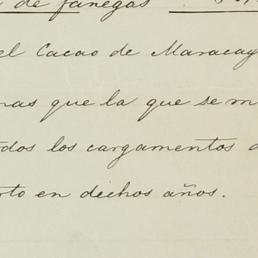 de fanegas
el Cacao de Maracay
mas que la que se m
dos los cargamentos d
rto en dichos años.